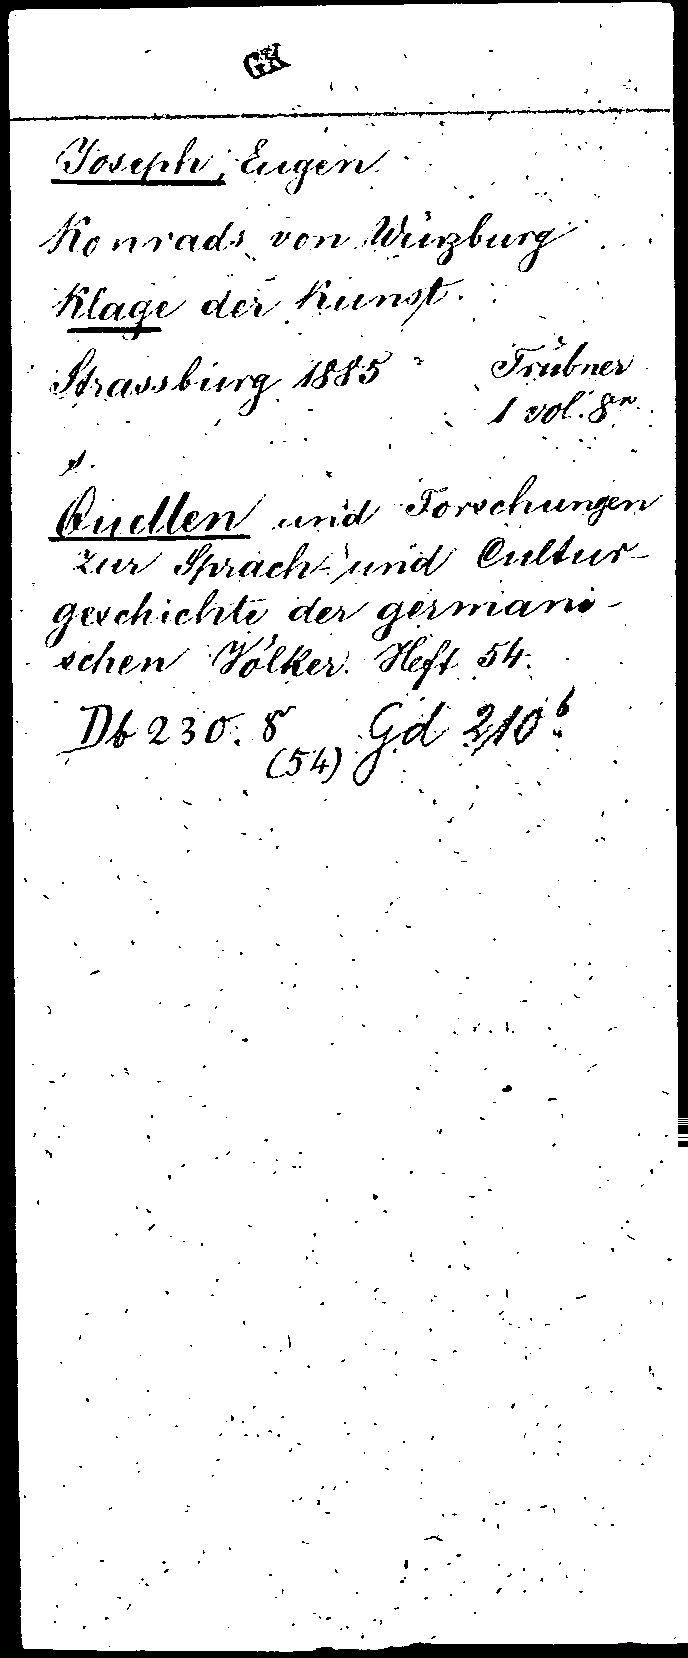 GK
Joseph, Eugen.
Konrads von Würzburg
Klage der Kunst.
Strassburg 1885 Trübner
1 vol. 8°
s.
Quellen und Forschungen
zur Sprach- und Cultur-
geschichte der germani-
schen Völker. Heft 54.
Db 230. 8 Gd 210 b
(54)